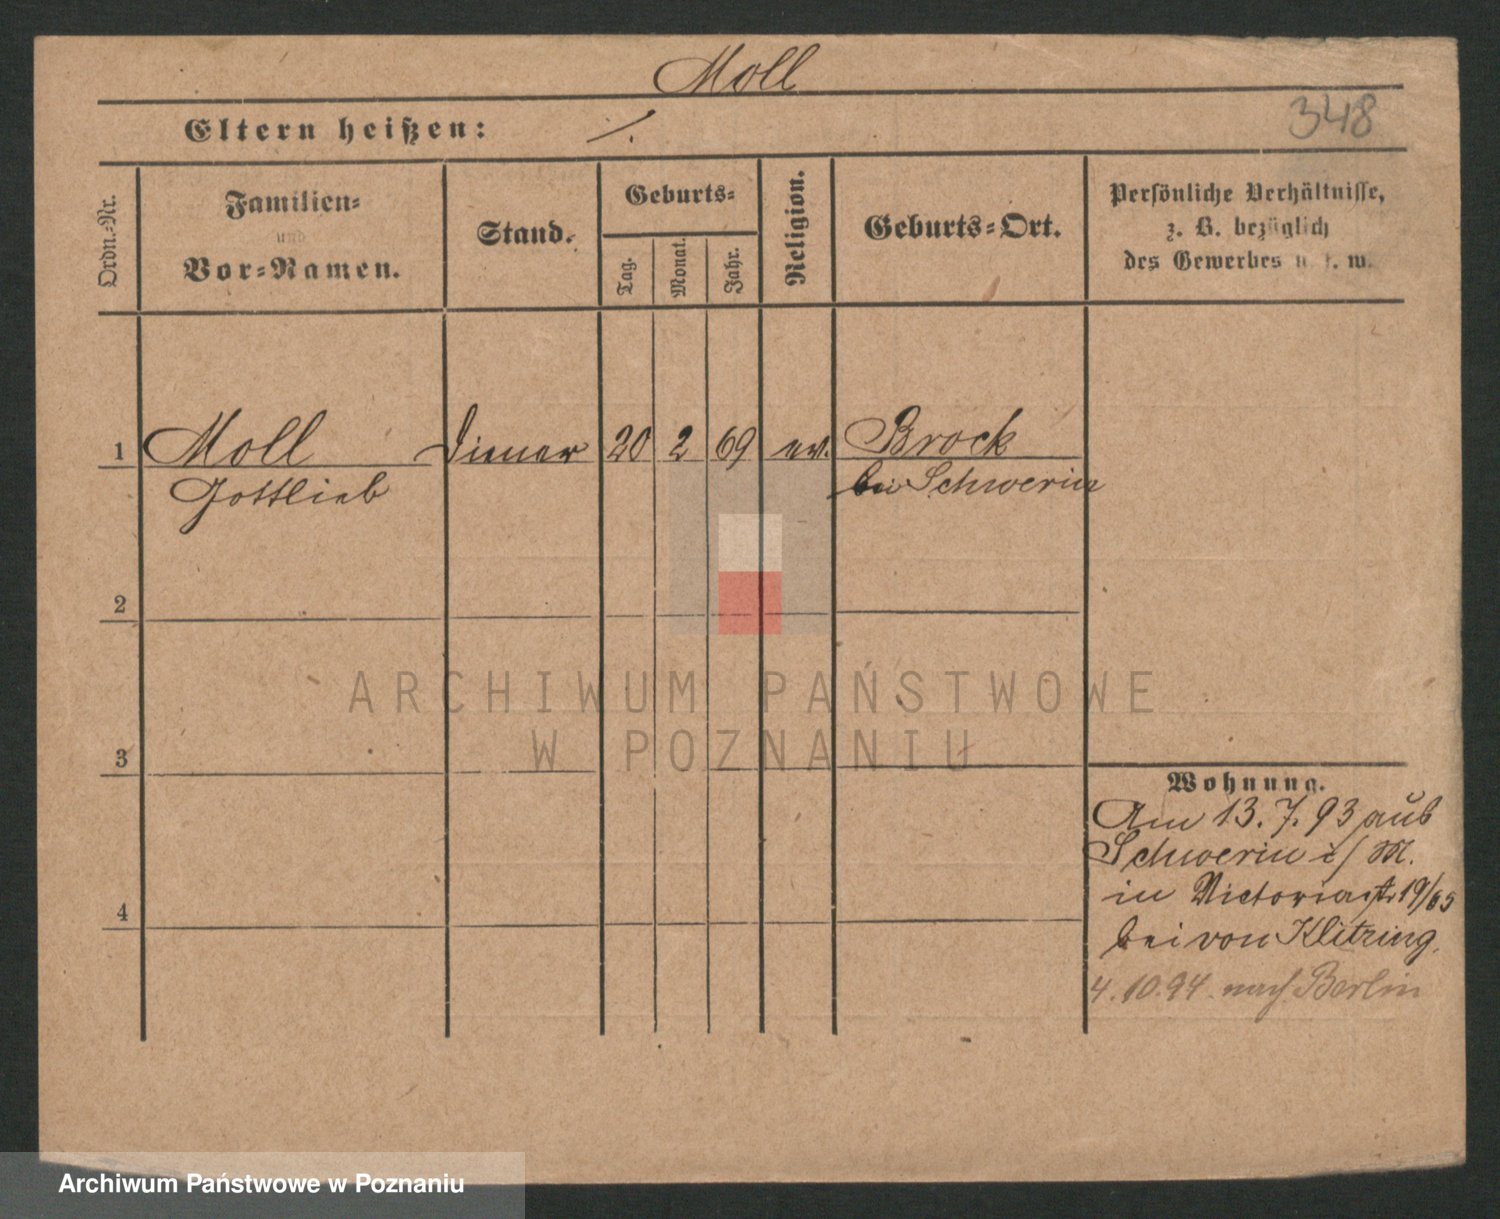 Moll
348
Eltern heißen: /.
Ordn.-Nr.
Familien-
und
Vor-Namen.
Stand.
Geburts-
Tag.
Monat.
Jahr.
Religion.
Geburts-Ort.
Persönliche Verhältnisse,
z. B. bezüglich
des Gewerbes u. s. w.
1 Moll Diener 20 2 69 ev. Brock
Gottlieb bei Schwerin
2
3
4
Wohnung.
Am 13. 7. 93 aus
Schwerin i/M.
in Victoriastr 19/
bei von Klitzing.
4.10.94. nach Berlin
ARCHIWUM PAŃSTWOWE
W POZNANIU
Archiwum Państwowe w Poznaniu